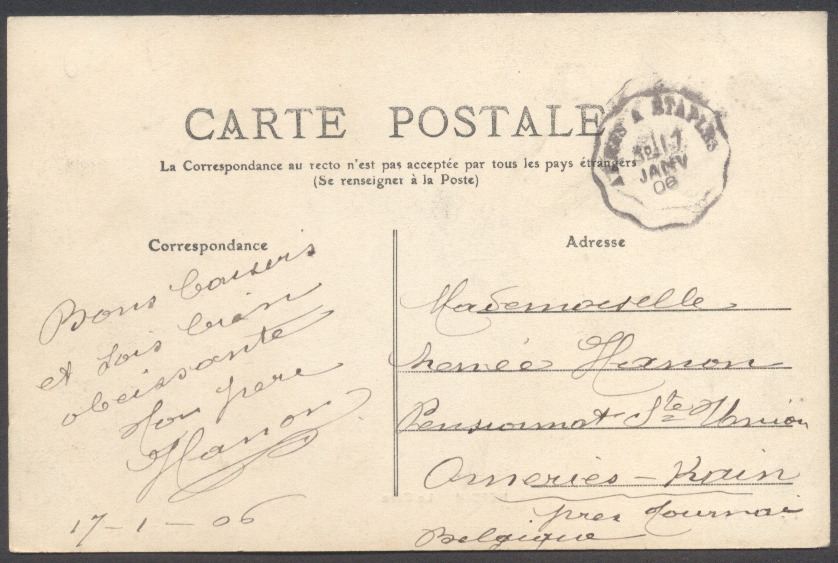 CARTE POSTALE
La Correspondance au recto n'est pas acceptée par tous les pays étrangers
(Se renseigner à la Poste)
A ETAPLES
JANV
06
Correspondance
Bons baisers
et sois bien
obeissante
Ton pere
Hanon
17-1-06
Adresse
Mademoiselle
Renée Hanon
Pensionnat Ste Union
Omeries - Kain
près Tournai
Belgique